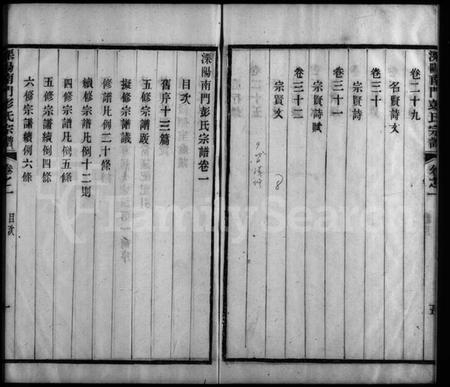 溧陽南門彭氏宗譜
卷之一
五
卷二十九
名賢詩文
卷三十
宗賢詩
卷三十一
宗賢詩賦
卷三十二
宗賢文
溧陽南門彭氏宗譜卷一
目次
舊序十三篇
五修宗譜跋
擬修宗譜議
修譜凡例二十條
續修宗譜凡例十二則
四修宗譜凡例五條
五修宗譜續例四條
六修宗譜續例六條
溧陽南門彭氏宗譜
卷之一
目次
一
FamilySearch